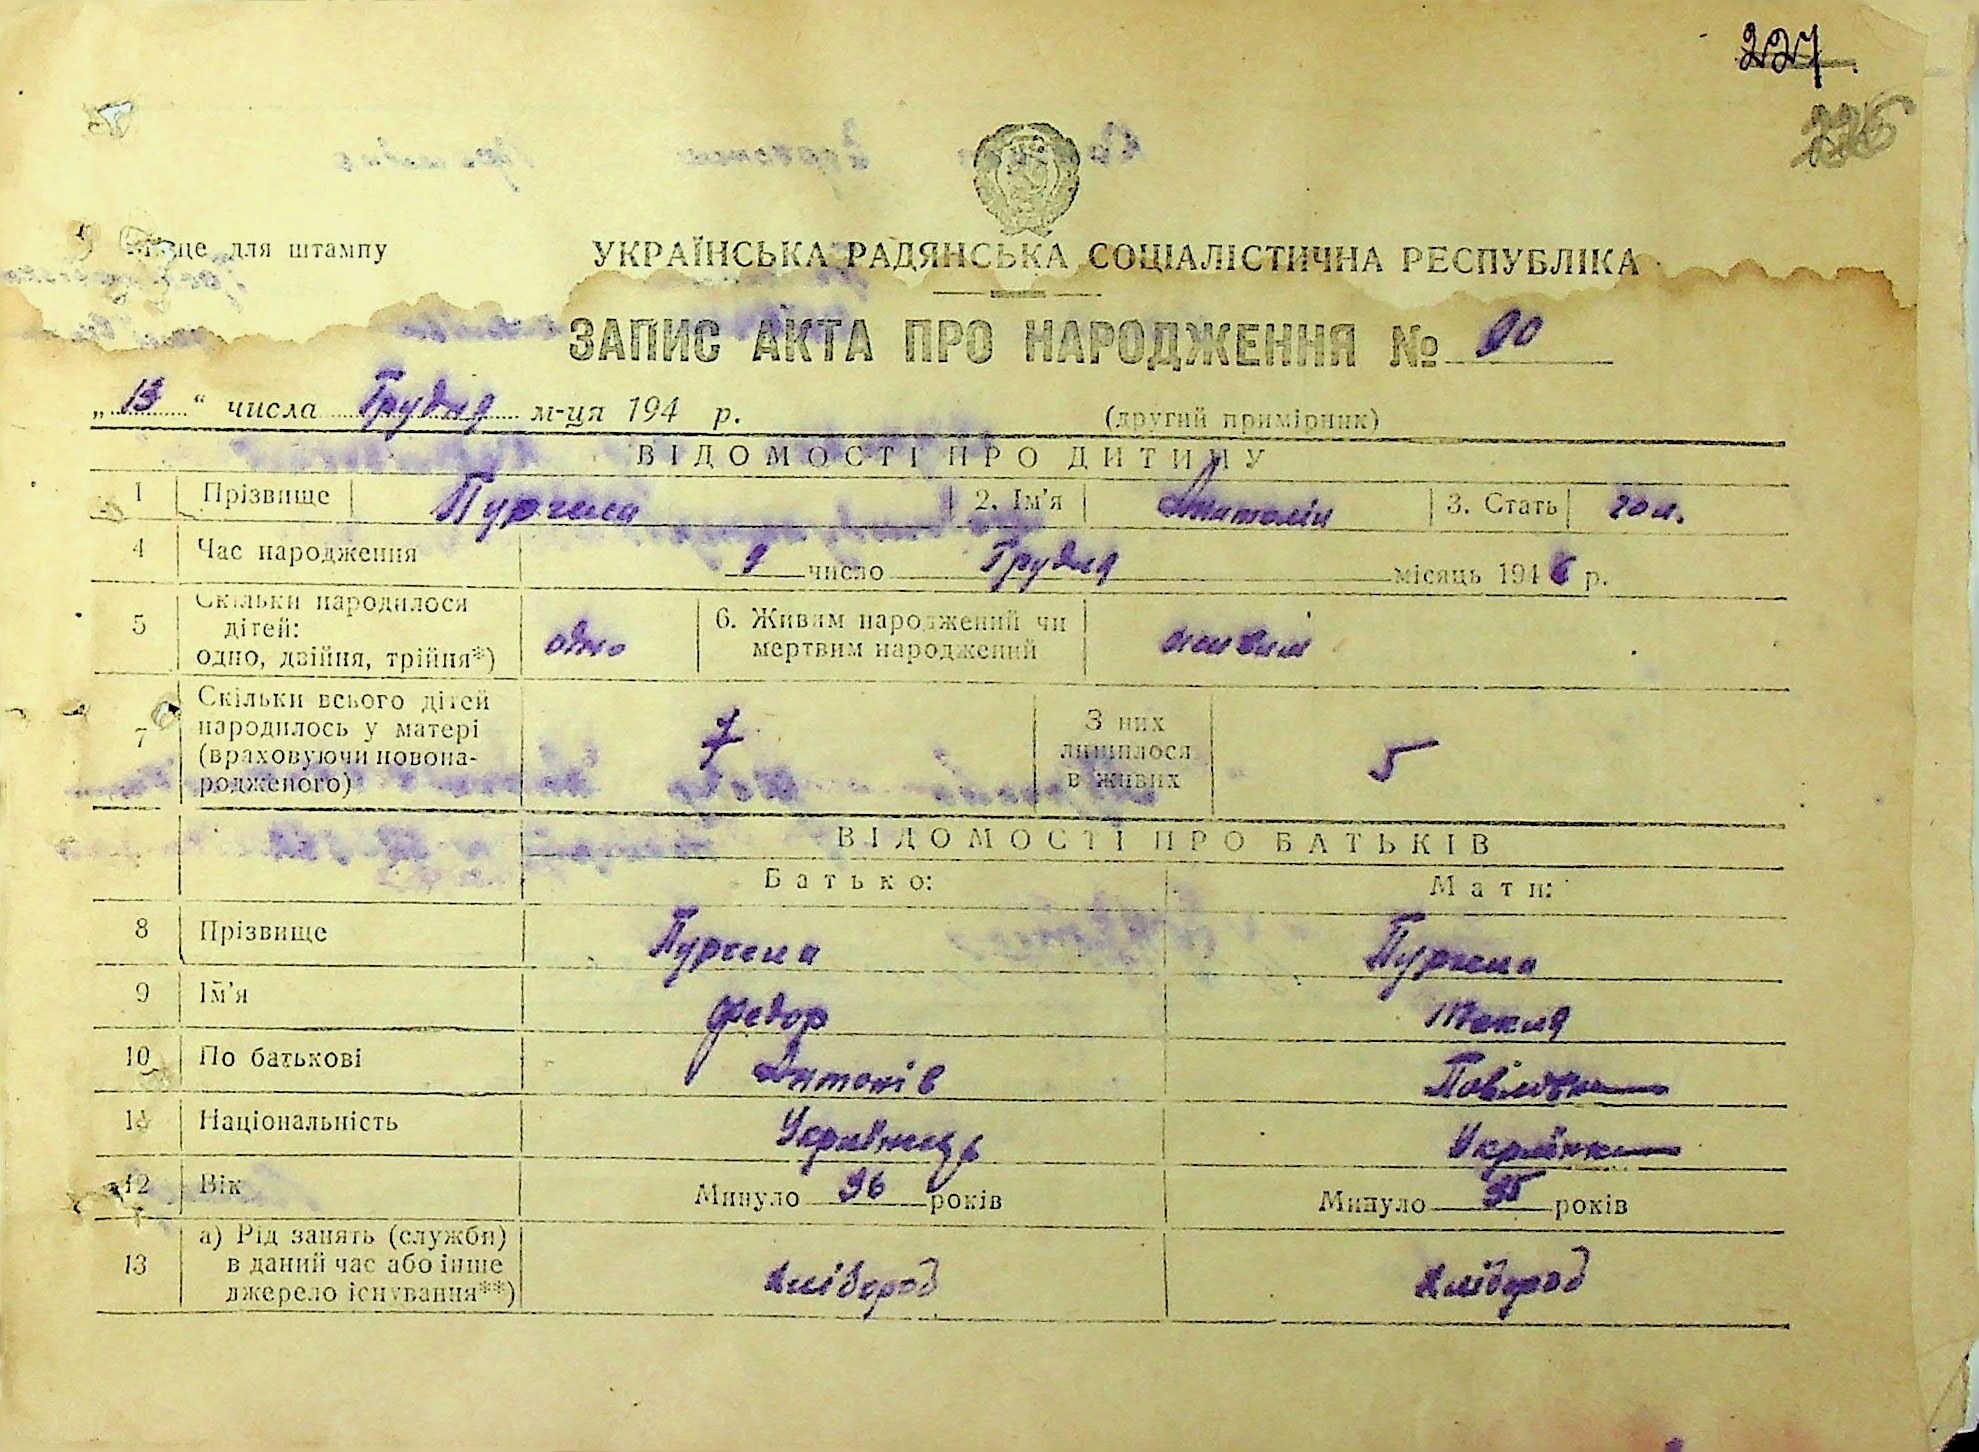 227
226
Місце для штампу
УКРАЇНСЬКА РАДЯНСЬКА СОЦІАЛІСТИЧНА РЕСПУБЛІКА
ЗАПИС АКТА ПРО НАРОДЖЕННЯ № 90
„13“ числа Грудня м-ця 194 р. (другий примірник)
ВІДОМОСТІ ПРО ДИТИНУ
1 Прізвище 2. Ім'я Анатолій 3. Стать чол.
4 Час народження 9 число Грудня місяць 1946 р.
5 Скільки народилося
дітей:
одно, двійня, трійня*) одно 6. Живим народжений чи
мертвим народжений живим
7 Скільки всього дітей
народилось у матері
(враховуючи новона-
родженого) 7 З них
лишилося
в живих 5
ВІДОМОСТІ ПРО БАТЬКІВ
Батько: Мати:
8 Прізвище
9 Ім'я Федор
10 По батькові Антонів Павловна
11 Національність Українець Українка
12 Вік Минуло 36 років Минуло 35 років
13 а) Рід занять (служби)
в даний час або інше
джерело існування**) хлібороб хлібороб